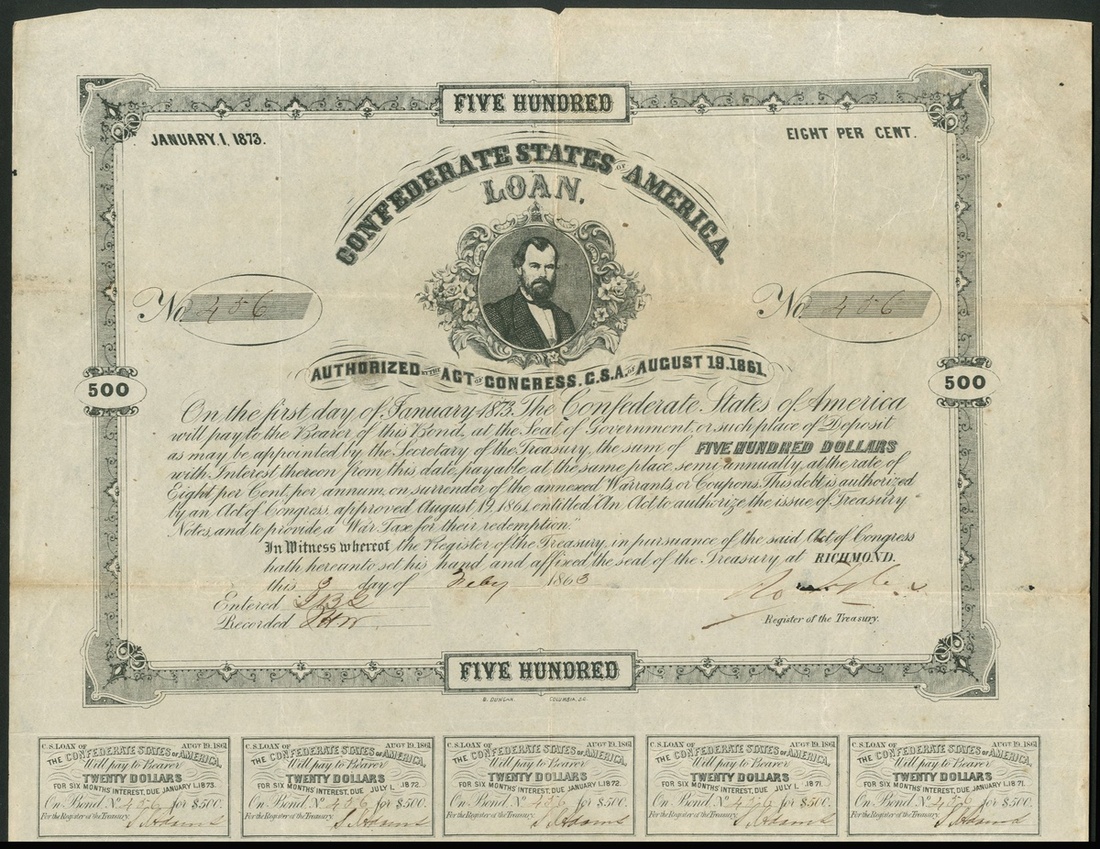 FIVE HUNDRED
JANUARY.1.1873.
EIGHT PER CENT.
CONFEDERATE STATES OF AMERICA.
LOAN.
No 456
No 456
AUTHORIZED BY THE ACT OF CONGRESS. C.S.A. OF AUGUST 19.1861.
500
500
On the first day of January 1873. The Confederate States of America
will pay to the Bearer of this Bond, at the Seat of Government, or such place of Deposit
as may be appointed by the Secretary of the Treasury, the sum of FIVE HUNDRED DOLLARS
with Interest thereon from this date, payable at the same place, semi annually, at the rate of
Eight per Cent. per annum, on surrender of the annexed Warrants, or Coupons. This debt is authorized
by an Act of Congress, approved August 19, 1861, entitled "An Act to authorize the issue of Treasury
Notes, and to provide a War Tax for their redemption."
In Witness whereof the Register of the Treasury, in pursuance of the said Act of Congress
hath hereunto set his hand and affixed the seal of the Treasury at RICHMOND.
this 3 day of Feby 1863
Entered
Recorded
Register of the Treasury.
FIVE HUNDRED
COLUMBIA, S.C.
C.S. LOAN OF AUGT 19, 1861
THE CONFEDERATE STATES OF AMERICA,
Will pay to Bearer
TWENTY DOLLARS
FOR SIX MONTHS' INTEREST, DUE JANUARY 1, 1873.
On Bond No 456 for $500.
For the Register of the Treasury. S. Adams
C.S. LOAN OF AUGT 19, 1861
THE CONFEDERATE STATES OF AMERICA,
Will pay to Bearer
TWENTY DOLLARS
FOR SIX MONTHS' INTEREST, DUE JULY 1, 1872.
On Bond No 456 for $500.
For the Register of the Treasury. S. Adams
C.S. LOAN OF AUGT 19, 1861
THE CONFEDERATE STATES OF AMERICA,
Will pay to Bearer
TWENTY DOLLARS
FOR SIX MONTHS' INTEREST, DUE JANUARY 1, 1872.
On Bond No 456 for $500.
For the Register of the Treasury. S. Adams
C.S. LOAN OF AUGT 19, 1861
THE CONFEDERATE STATES OF AMERICA,
Will pay to Bearer
TWENTY DOLLARS
FOR SIX MONTHS' INTEREST, DUE JULY 1, 1871.
On Bond No 456 for $500.
For the Register of the Treasury. S. Adams
C.S. LOAN OF AUGT 19, 1861
THE CONFEDERATE STATES OF AMERICA,
Will pay to Bearer
TWENTY DOLLARS
FOR SIX MONTHS' INTEREST, DUE JANUARY 1, 1871.
On Bond No 456 for $500.
For the Register of the Treasury. S. Adams